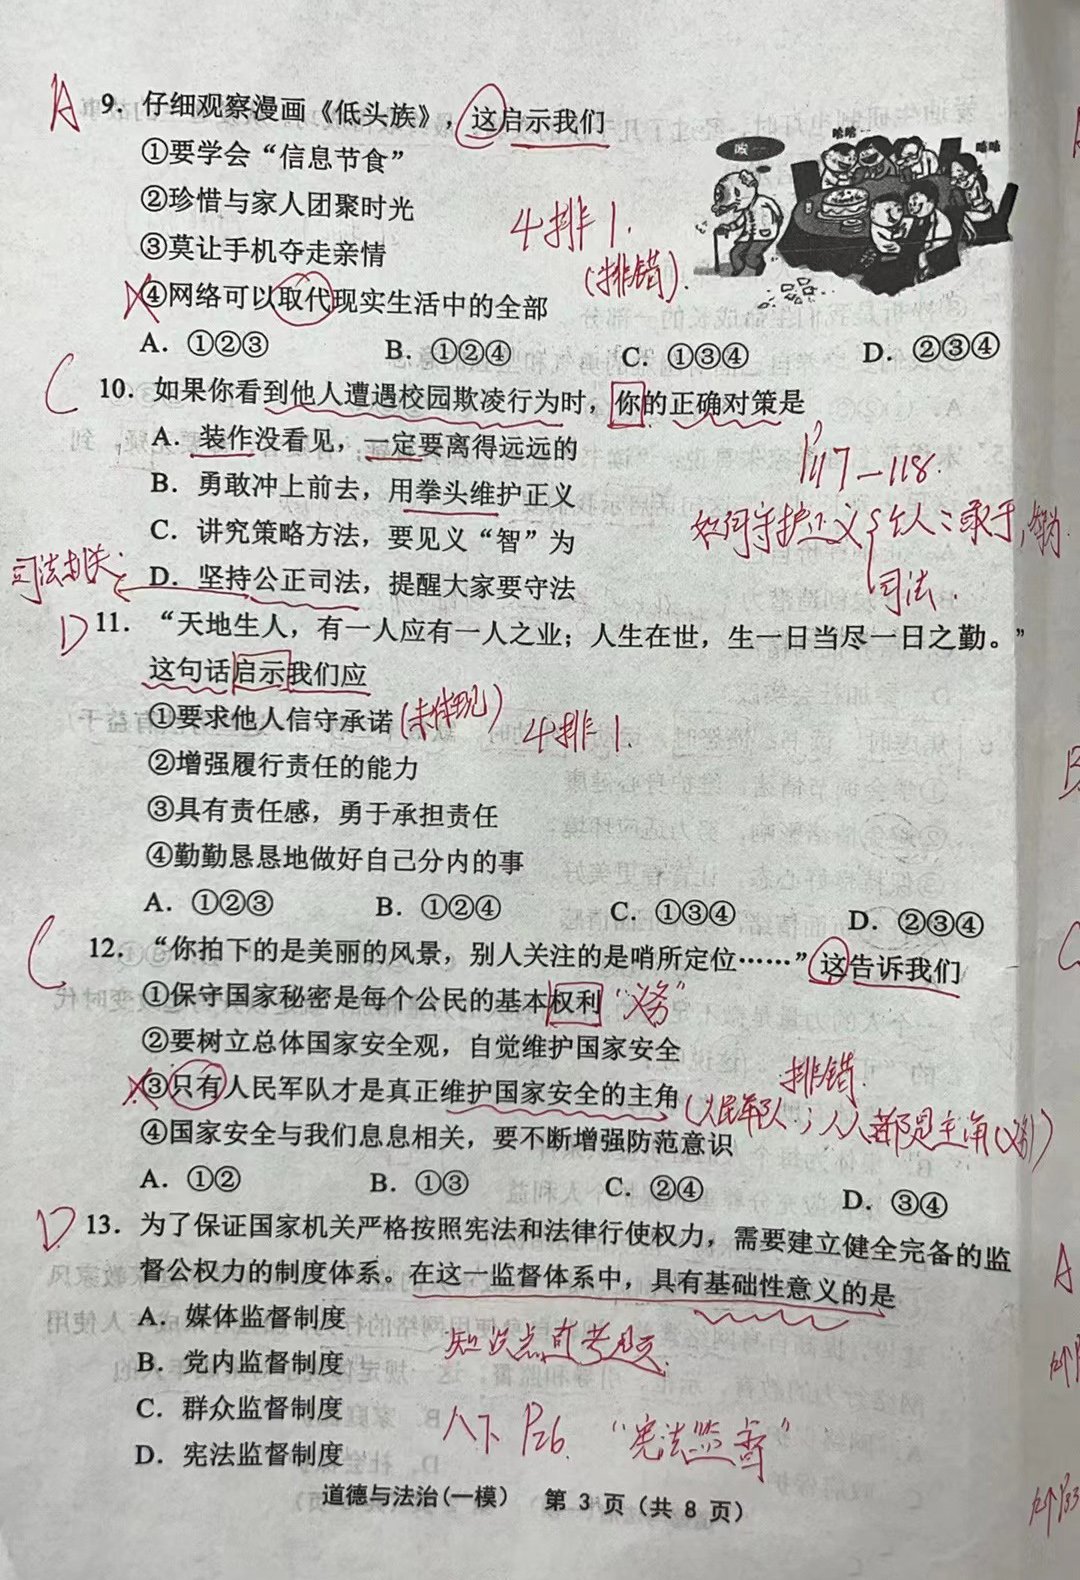 A 9. 仔细观察漫画《低头族》，这启示我们
①要学会“信息节食”
②珍惜与家人团聚时光
③莫让手机夺走亲情
④网络可以取代现实生活中的全部
4排1.
(排错).
唉……
咕咕
咕咕
A. ①②③ B. ①②④ C. ①③④ D. ②③④
C 10. 如果你看到他人遭遇校园欺凌行为时，你的正确对策是
A. 装作没看见，一定要离得远远的
B. 勇敢冲上前去，用拳头维护正义
C. 讲究策略方法，要见义“智”为
D. 坚持公正司法，提醒大家要守法
P117—118.
如何守护正义 个人：敢于,智为.
司法.
司法机关:
D 11. “天地生人，有一人应有一人之业；人生在世，生一日当尽一日之勤。”
这句话启示我们应
①要求他人信守承诺(未体现)
②增强履行责任的能力
4排1.
③具有责任感，勇于承担责任
④勤勤恳恳地做好自己分内的事
A. ①②③ B. ①②④ C. ①③④ D. ②③④
C 12. “你拍下的是美丽的风景，别人关注的是哨所定位……”这告诉我们
①保守国家秘密是每个公民的基本权利“义务”
②要树立总体国家安全观，自觉维护国家安全
排错.
③只有人民军队才是真正维护国家安全的主角(人民军队；人人都是主角(义务))
④国家安全与我们息息相关，要不断增强防范意识
A. ①② B. ①③ C. ②④ D. ③④
D 13. 为了保证国家机关严格按照宪法和法律行使权力，需要建立健全完备的监
督公权力的制度体系。在这一监督体系中，具有基础性意义的是
A. 媒体监督制度
B. 党内监督制度
C. 群众监督制度
D. 宪法监督制度
知识点直考题.
八下 P26. “宪法监督”
道德与法治(一模) 第 3 页 (共 8 页)